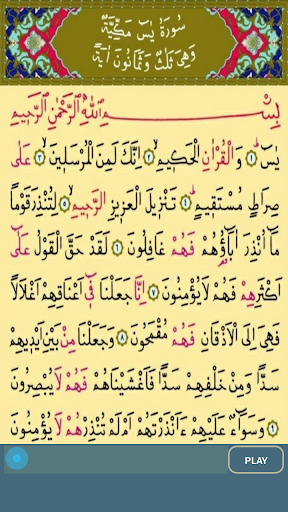 سُورَةُ يٰسٓ مَكِّيَّةٌ
وَهِىَ ثَلَٰثٌ وَثَمَانُونَ اٰيَةً
بِسْمِ اللّٰهِ الرَّحْمٰنِ الرَّحِيمِ
يٰسٓ ﴿١﴾ وَالْقُرْاٰنِ الْحَكِيمِ ﴿٢﴾ اِنَّكَ لَمِنَ الْمُرْسَلِينَ ﴿٣﴾ عَلٰى
صِرَاطٍ مُسْتَقِيمٍ ﴿٤﴾ تَنْزِيلَ الْعَزِيزِ الرَّحِيمِ ﴿٥﴾ لِتُنْذِرَ قَوْمًا
مَٓا اُنْذِرَ اٰبَٓاؤُ۬هُمْ فَهُمْ غَافِلُونَ ﴿٦﴾ لَقَدْ حَقَّ الْقَوْلُ عَلٰٓى
اَكْثَرِهِمْ فَهُمْ لَا يُؤْمِنُونَ ﴿٧﴾ اِنَّا جَعَلْنَا فٖٓى اَعْنَاقِهِمْ اَغْلَالًا
فَهِىَ اِلَى الْاَذْقَانِ فَهُمْ مُقْمَحُونَ ﴿٨﴾ وَجَعَلْنَا مِنْ بَيْنِ اَيْدِيهِمْ
سَدًّا وَمِنْ خَلْفِهِمْ سَدًّا فَاَغْشَيْنَاهُمْ فَهُمْ لَا يُبْصِرُونَ
﴿٩﴾ وَسَوَٓاءٌ عَلَيْهِمْ ءَاَنْذَرْتَهُمْ اَمْ لَمْ تُنْذِرْهُمْ لَا يُؤْمِنُونَ
PLAY